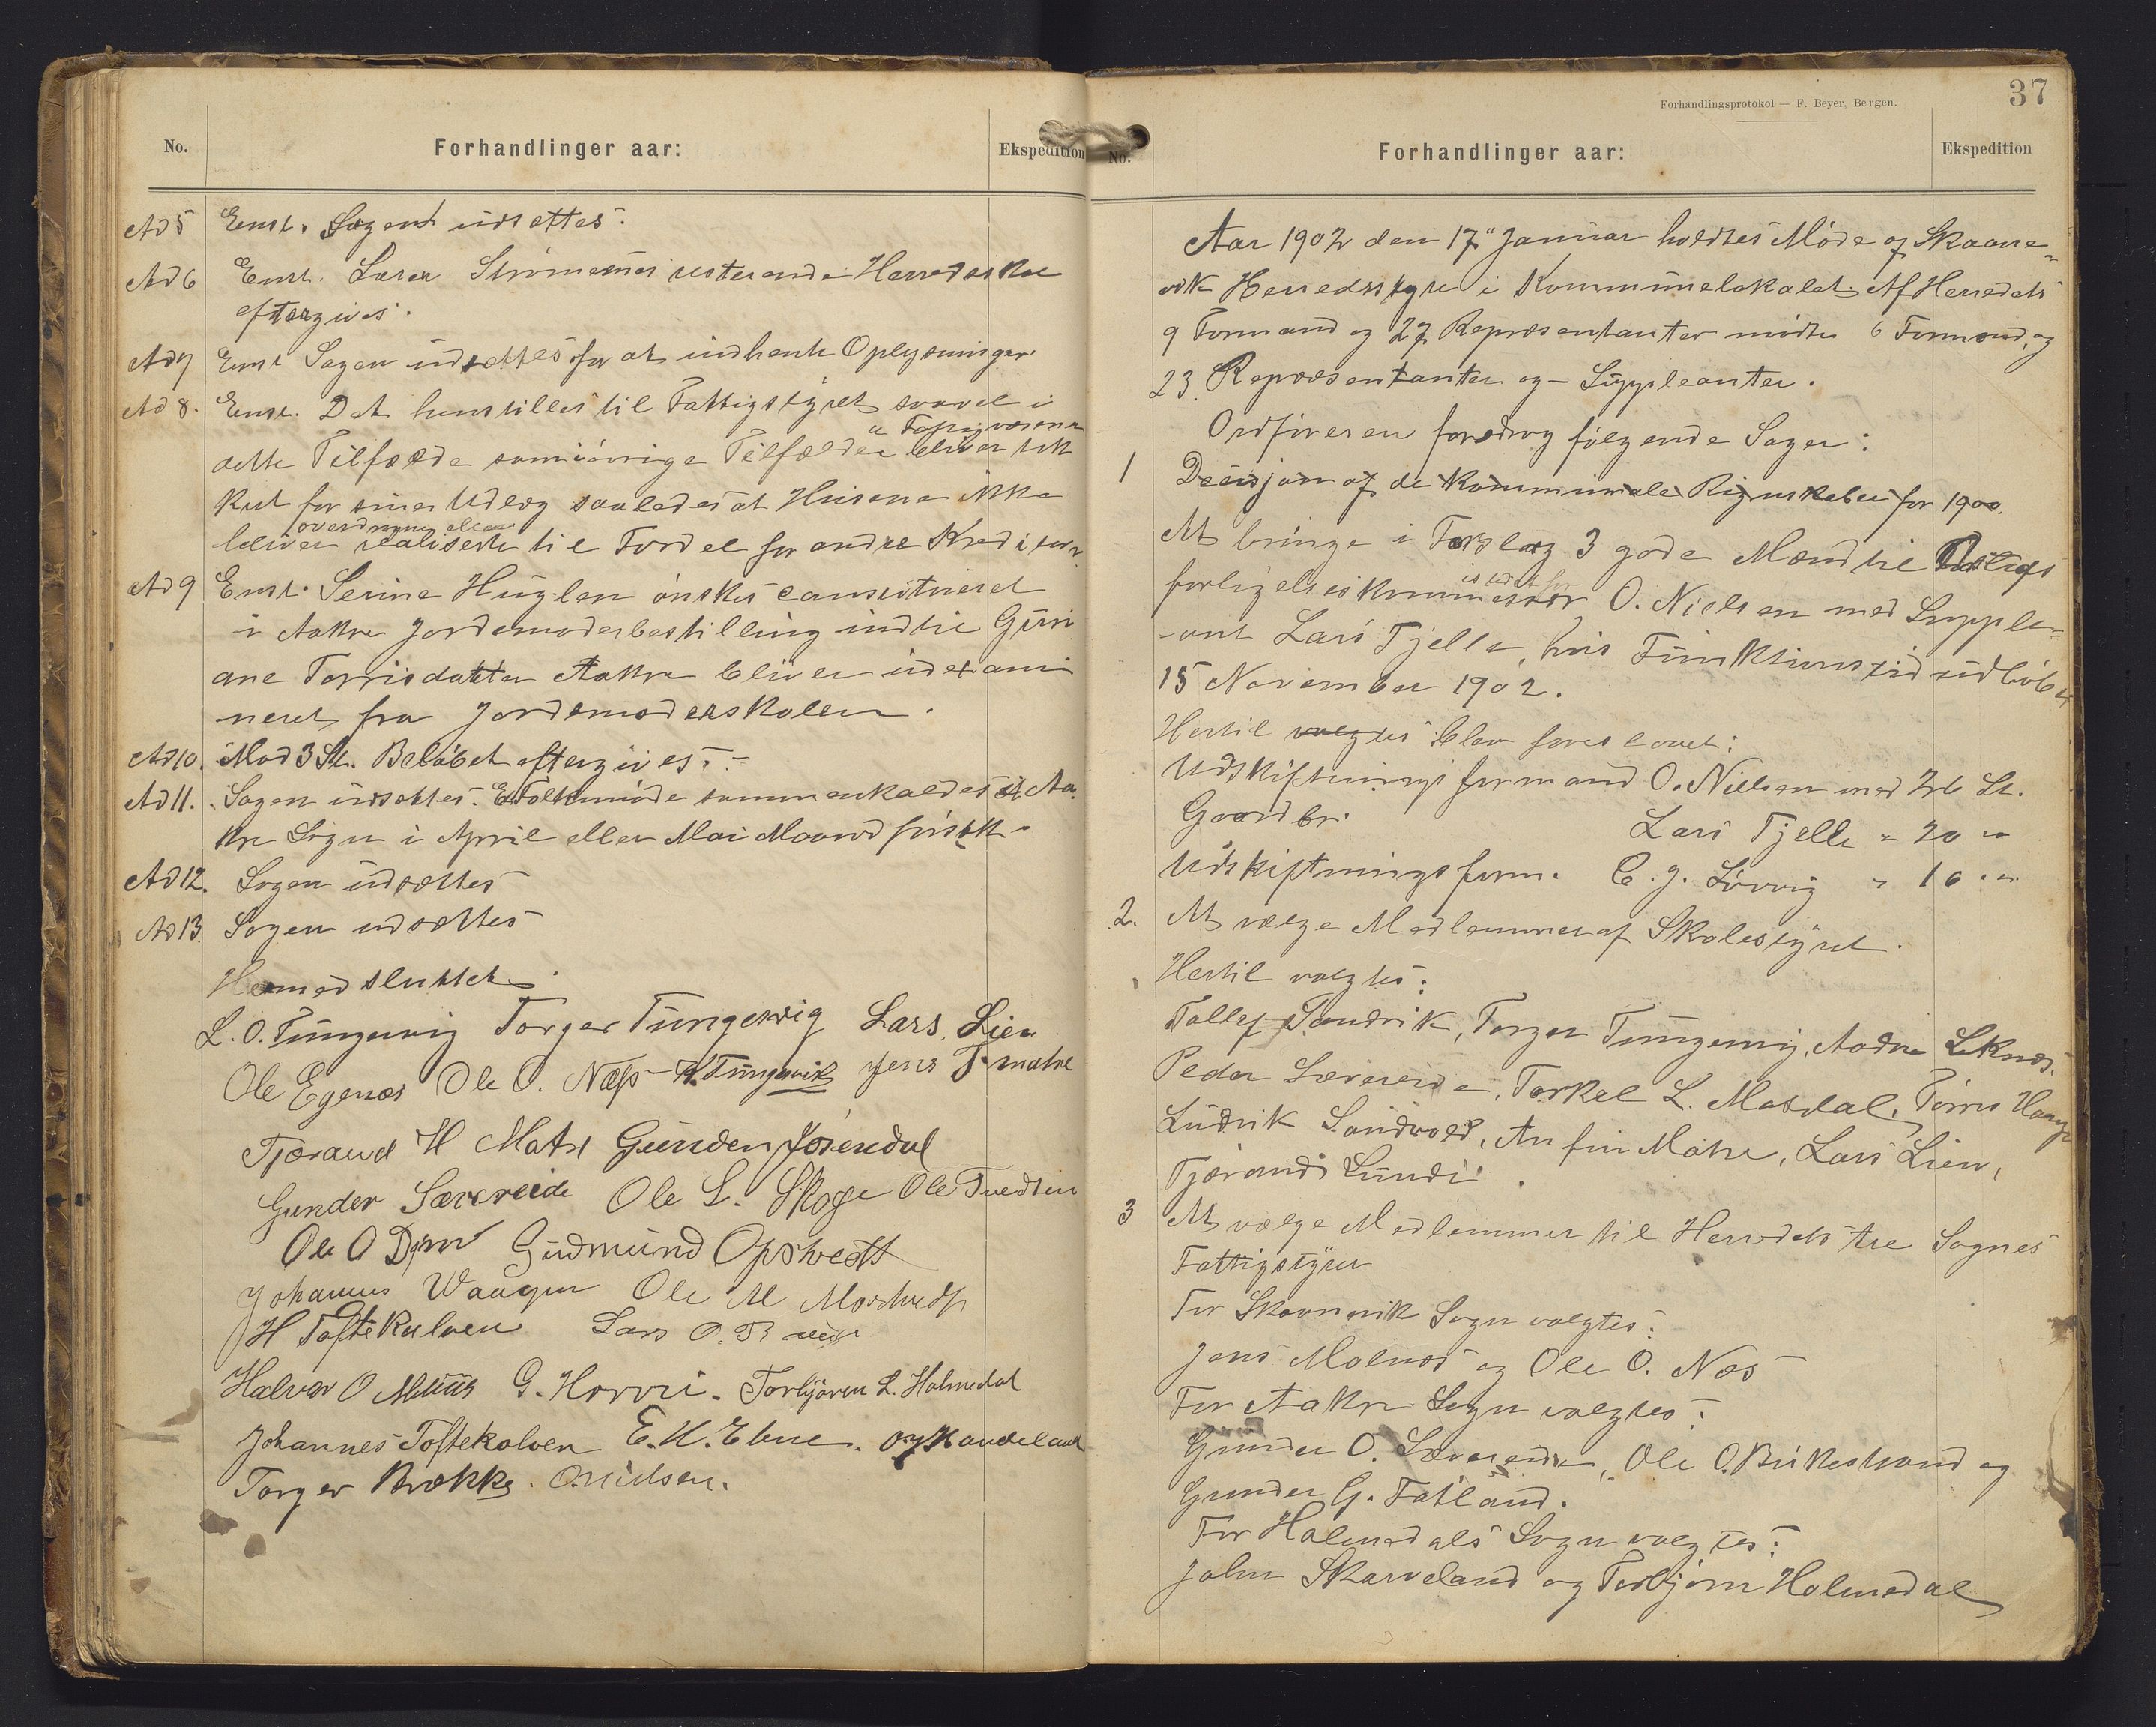 No.
Forhandlinger aar:
Ekspedition
Ad 5 Enst. Sagen udsættes.
Ad 6 Enst. Strømsnes resterende Herredsskat
eftergives.
Ad 7 Enst Sagen udsættes for at indhente Oplysninger.
Ad 8. Enst. Det henstilles til Fattigstyret saavel i
dette Tilfælde som i øvrige Tilfælder at Fattigvæsenet bliver dæk
ket for sine Udlæg saaledes at Husene ikke
bliver overdragne eller realiserte til Fordel for andre Kreditorer
Ad 9 Enst. Serine Huglen ønskes constitueret
i Aakre Jordemoderbestilling indtil Guri
ane Torrisdatter Aakre bliver udexami
neret fra Jordemoderskolen.
Ad 10. Mod 3 St. Beløbet eftergives.
Ad 11. Sagen udsættes. Et Folkemøde sammenkaldes i Aa
kre Sogn i April eller Mai Maaned først.
Ad 12. Sagen udsættes
Ad 13. Sagen udsættes
Hermed sluttet.
L. O. Tungesvig Torger Tungesvig Lars Lien
Ole Egenæs Ole O. Næs H. Tungesvik Jens T. Matre
Tjærand H Matre Gunder Josendal
Gunder Særereide Ole L. Skoge Ole Tvedten
Ole O Gudmund Opstvedt
Johannes Waagen Ole M
H Toftekalven Lars O.
Halvor O Milius G. Hervri. Torbjørn L. Holmedal
Johannes Toftekalven E. H. Ebne. O J Kandeland
Torger Brække. O. Nielsen.
37
Forhandlingsprotokol — F. Beyer, Bergen.
No.
Forhandlinger aar:
Ekspedition
Aar 1902 den 17" Januar holdtes Møde af Skaane-
vik Herredsstyre i Kommunelokalet. Af Herredets
9 Formænd og 27 Repræsentanter mødte 6 Formænd og
23 Repræsentanter og Suppleanter.
Ordføreren foredrog følgende Sager:
1 Decisjon af de kommunale Regnskaber for 1900.
At bringe i Forslag 3 gode Mænd til
forligelseskommissær istedet for O. Nielsen med Supple-
ant Lars Tjelle, hvis Funktionstid udløber
15 November 1902.
Hertil valgtes blev foreslaaet:
Udskiftningsformand O. Nielsen med 26 St.
Gaardbr. Lars Tjelle " 20 "
Udskiftningsform. C. J. Løvvig " 16 "
2. At vælge Medlemmer af Skolestyret.
Hertil valgtes:
Tollef Sandvik, Torger Tungesvig, Aadne Leknes,
Peder Særereide, Torkel L. Mosdal, Tørres Hauge
Ludvik Sandvold, Anfin Matre, Lars Lien,
Tjærand Lunde.
3 At vælge Medlemmer til Herredets tre Sognes
Fattigstyrer
For Skaanevik Sogn valgtes:
Jens Molnes og Ole O. Næs
For Aakre Sogn valgtes:
Gunder O. Særereide, Ole O. Birkestrand og
Gunder G. Fatland.
For Holmedals Sogn valgtes:
John Skarveland og Torbjørn Holmedal